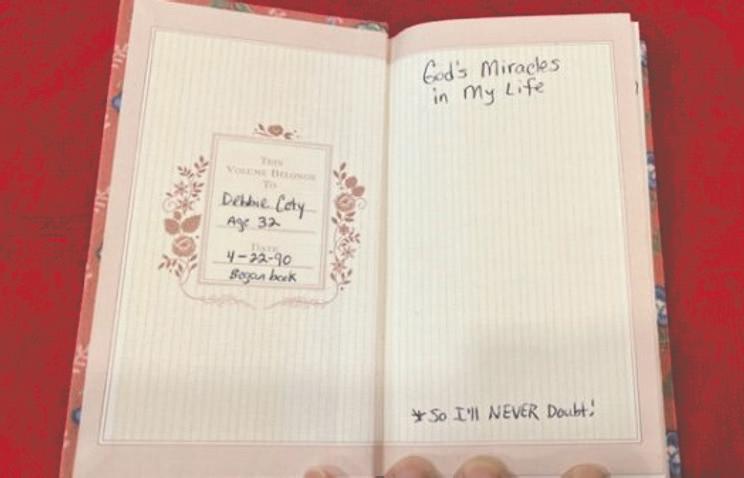 THIS
VOLUME BELONGS
TO
Debbie Coty
Age 32
DATE
4-22-90
Began book
God's Miracles
in My Life
*So I'll NEVER Doubt!